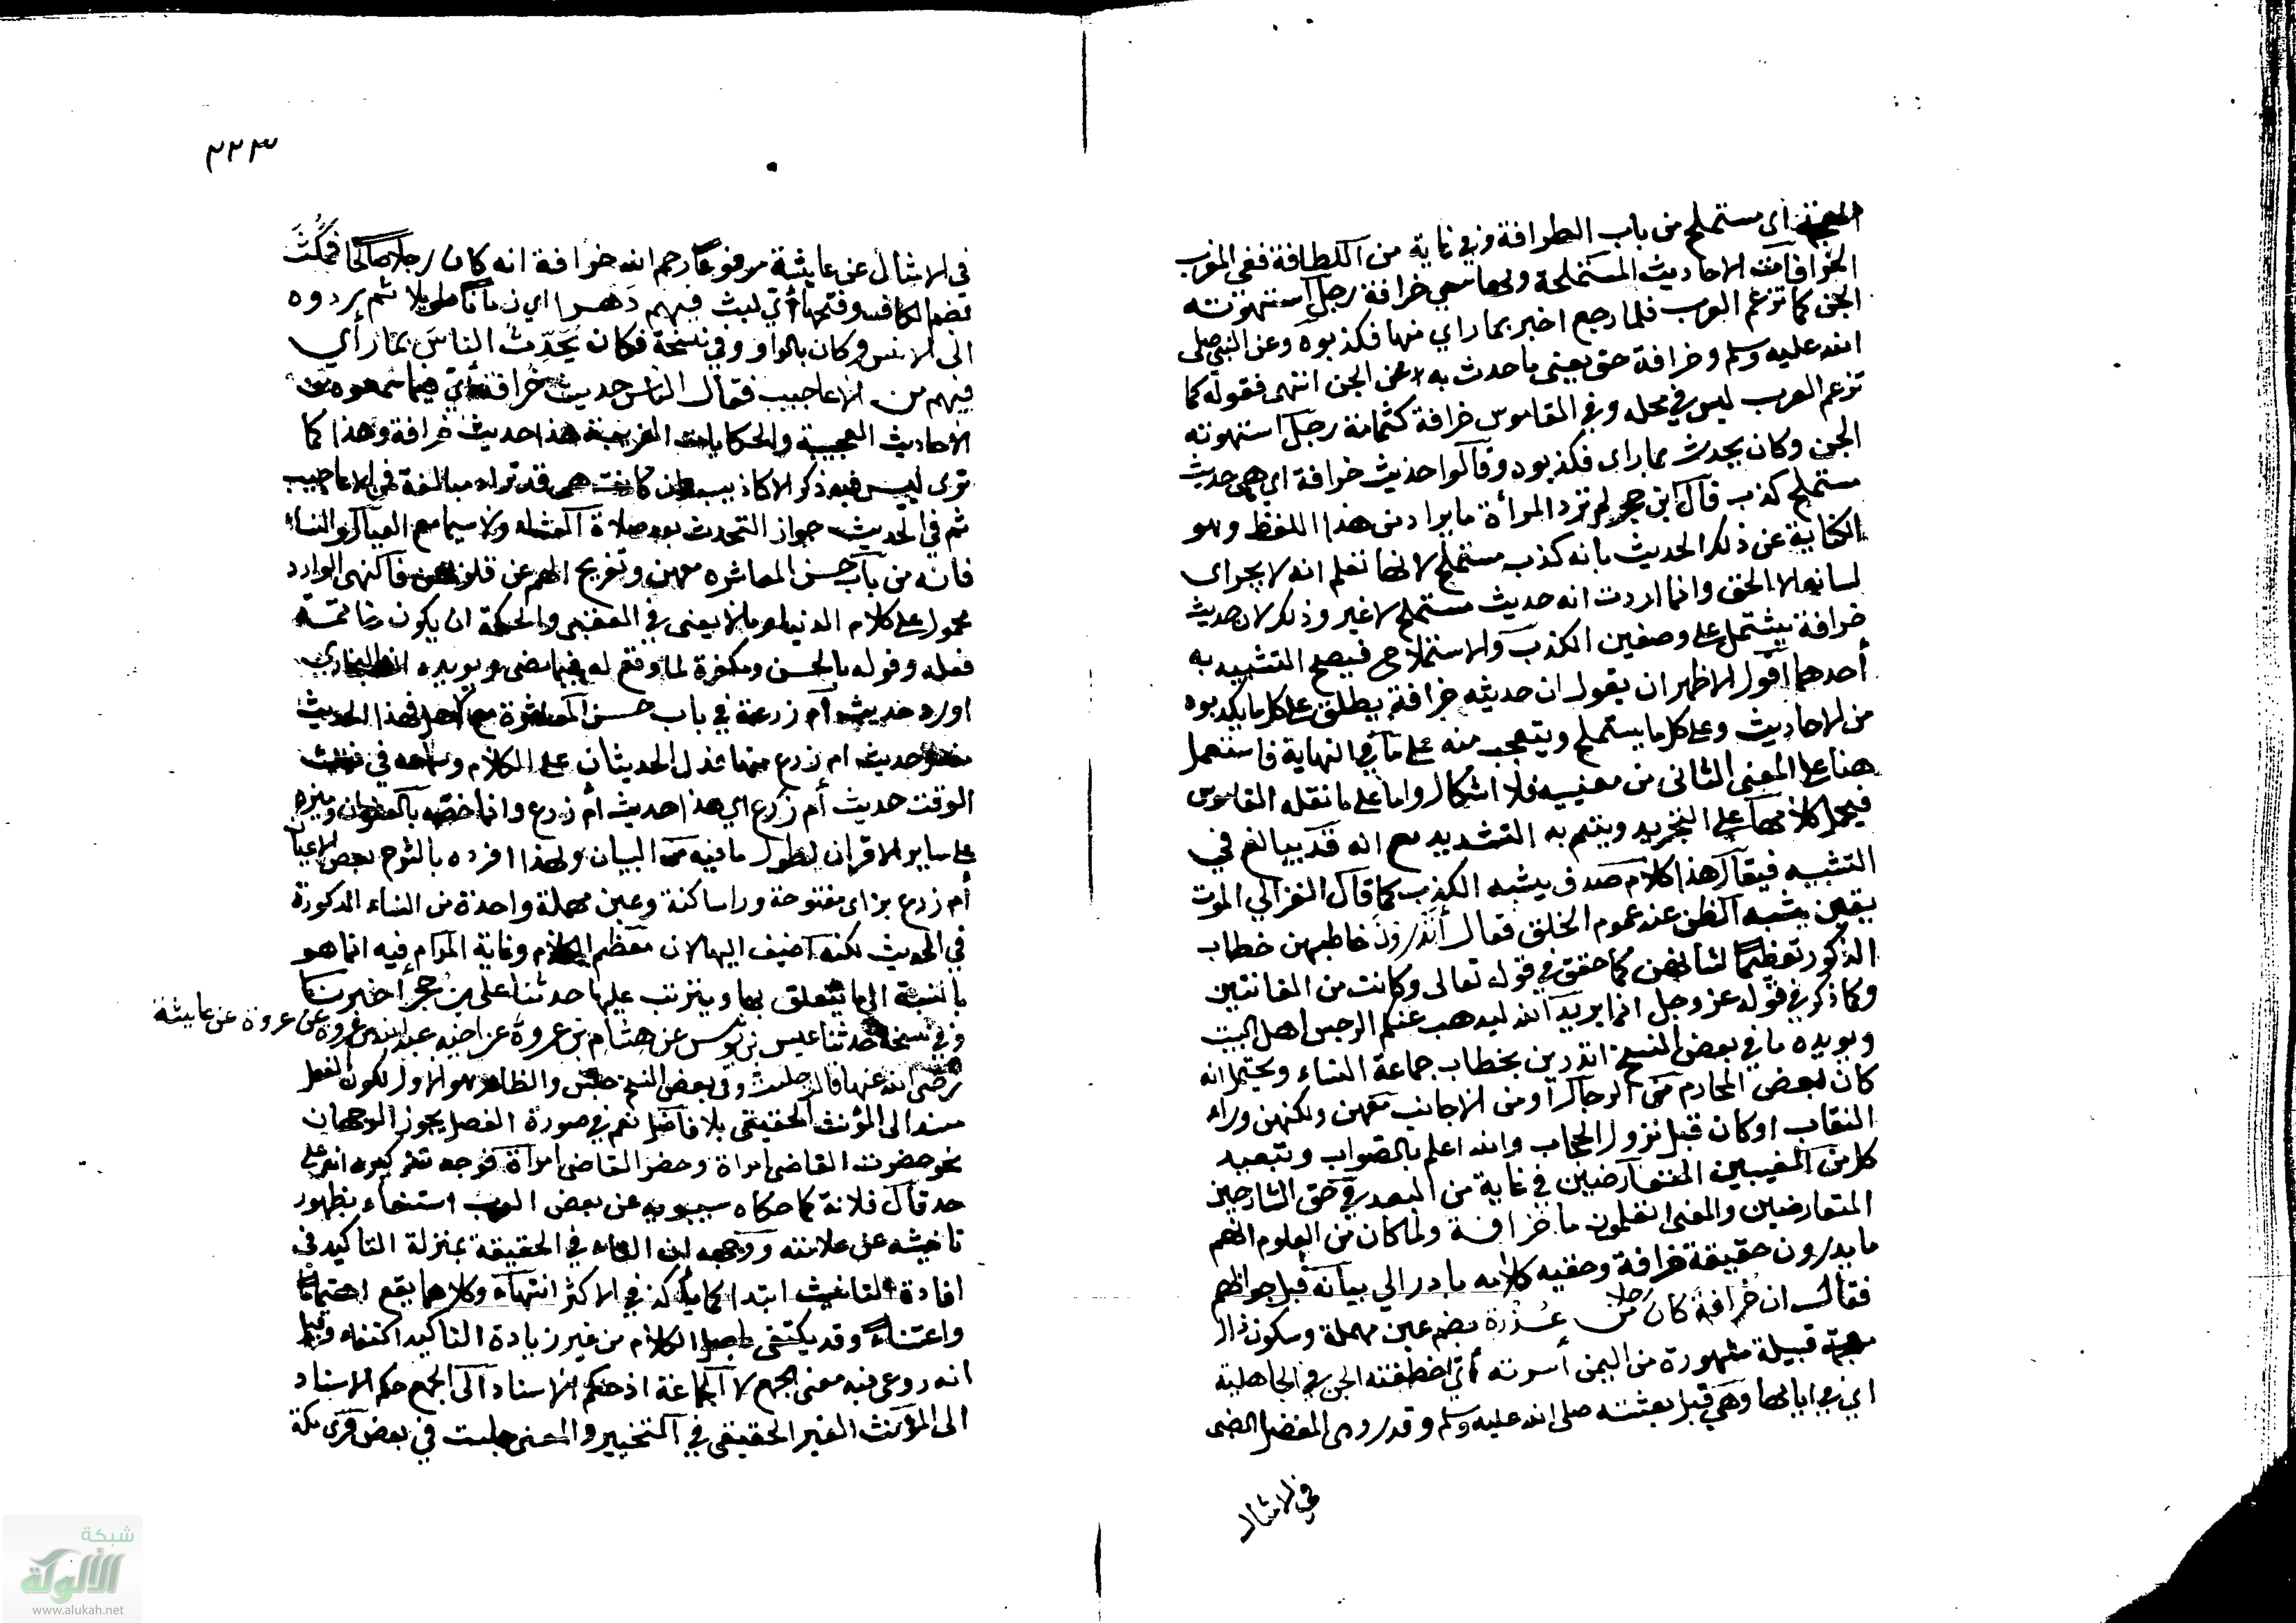 المعجمة أي مستملح من باب الطرافة وفي غاية من اللطافة ففي المغرب
الخرافات الاحاديث المستملحة وبها سمي خرافة رجل استهوته
الجن كما تزعم العرب فلما رجع اخبر بما راي منها فكذبوه وعن النبي صلى
الله عليه وسلم وخرافة حق يعني ما حدث به عن الجن انتهى فقوله كما
تزعم العرب ليس في محله وفي القاموس خرافة كثمامة رجل استهوته
الجن وكان يحدث بما راى فكذبوه وقالوا حديث خرافة اي هي حديث
مستملح كذب قال ابن حجر لم ترد المرأة ما يراد من هذا اللفظ وهو
الكناية عن ذلك الحديث بانه كذب مستملح لانها تعلم انه لا يجرى
لسانه الا الحق وانما اردت انه حديث مستملح لا غير وذلك لان حديث
خرافة يشتمل على وصفين الكذب والاستملاح فيصح التشبيه به
أحدهما اقول الاظهر ان يقول ان حديث خرافة يطلق على كل ما يكذبوه
من الاحاديث وعلى كل ما يستملح ويتعجب منه على ما في النهاية فاستعمل
هنا على المعنى الثاني من معنييه فلا اشكال واما على ما نقله القاموس
فيحمل كلامها على التجريد ويتم به التشبيه مع انه قد يبالغ في
التشبيه فيقال هذا كلام صدق يشبه الكذب كما قال الغزالي الموت
يقين يشبه الظن عند عموم الخلق فقال أتدرون خاطبهن خطاب
الذكور تعظيما لشانهن كما حقق في قوله تعالى وكانت من القانتين
وكما ذكر في قوله عز وجل انما يريد الله ليذهب عنكم الرجس اهل البيت
ويويده ما في بعض النسخ اتدرين بخطاب جماعة النساء ويحتمل انه
كان بعض المحارم من الرجال او من الاجانب معهن ولكنهن وراء
النقاب او كان قبل نزول الحجاب والله اعلم بالصواب وتبعيد
كل من المغيبين المتعارضين في غاية من البعد في حق الشارحين
المتعارضين والمعنى اتعلمون ما خرافة ولما كان من المعلوم انهم
ما يدرون حقيقة خرافة وحقيه كلامه بادر الي بيانه قبل جوابهم
فقال ان خرافة كان رجلا من عذرة بضم عين مهملة وسكون ذال
معجمة قبيلة مشهورة من اليمن أسرته أي اختطفته الجن في الجاهلية
اي في ايامها وهي قبل بعثته صلى الله عليه وسلم وقد روى المفضل الضبي
في الامثال
٢٢٣
في الامثال عن عايشة مرفوعا رحم الله خرافة انه كان رجلا صالحا فمكث
بضم الكاف وفتحها أي لبث فيهم دهرا اي زمانا طويلا ثم ردوه
الى الانس وكان بالواو وفي نسخة فكان يحدث الناس بما رأي
فيهم من الاعاجيب فقال الناس حديث خرافة أي فيما سمعوه من
الاحاديث العجيبة والحكايات الغريبة هذا حديث خرافة وهذا كما
ترى ليس فيه ذكر الاكاذيب وان كانت هي قد تراد مبالغة في الاعاجيب
ثم في الحديث جواز التحدث بعد صلاة العشاء ولا سيما مع العيال والنساء
فانه من باب حسن المعاشرة معهن وتفريح الهم عن قلوبهن فالنهي الوارد
محمول على كلام الدنيا وما لا يعنى في العقبى والحكمة ان يكون خاتمة
فعله وقوله بالحسن ومكفرة لما وقع له فيما مضى ويويده ان البخاري
اورد حديث أم زرعة في باب حسن المعاشرة مع الاهل فهذا الحديث
وحديث ام زرع منها فدل الحديثان على الكلام وسماعه في ذلك
الوقت حديث أم زرع اي هذا حديث أم زرع وانما خصه بالعنوان وميزه
على ساير الاقران لطول ما فيه من البيان ولهذا افرده بالشرح بعض الاعيان
أم زرع بزاى مفتوحة وراساكنة وعين مهملة واحدة من النساء المذكورة
في الحديث لكنه اضيف اليها لان معظم الكلام وغاية المرام فيه انما هو
بالنسبة الى ما يتعلق بها ويترتب عليها حدثنا على بن حجر أخبرنا
وفي نسخة حدثنا عيسى بن يونس عن هشام بن عروة عن اخيه عبد الله بن عروة عن عروة عن عايشة
رضى الله عنها قالت جلست وفي بعض النسخ جلس والظاهر هو الاول لكون الفعل
مسندا الى المؤنث الحقيقي بلا فاصل نعم في صورة الفصل يجوز الوجهان
نحو حضرت القاضي امراة وحضر القاضي امراة فوجه تذكيره انه على
حد قال فلانة كما حكاه سيبويه عن بعض العرب استغناء بظهور
تانيثه عن علامته ووجهه ان التاء في الحقيقة بمنزلة التاكيد في
افادة التانيث ابتداء كما يؤكد في الاكثر انتهاء وكلاهما يقع اهتماما
واعتناء وقد يكتفى باصل الكلام من غير زيادة التاكيد اكتفاء وقيل
انه روعي فيه معنى الجمع لا الجماعة اذ حكم الاسناد الى الجمع حكم الاسناد
الى المؤنث الغير الحقيقي في التخيير والمعنى جلست في بعض قرى مكة
شبكة
الألوكة
www.alukah.net